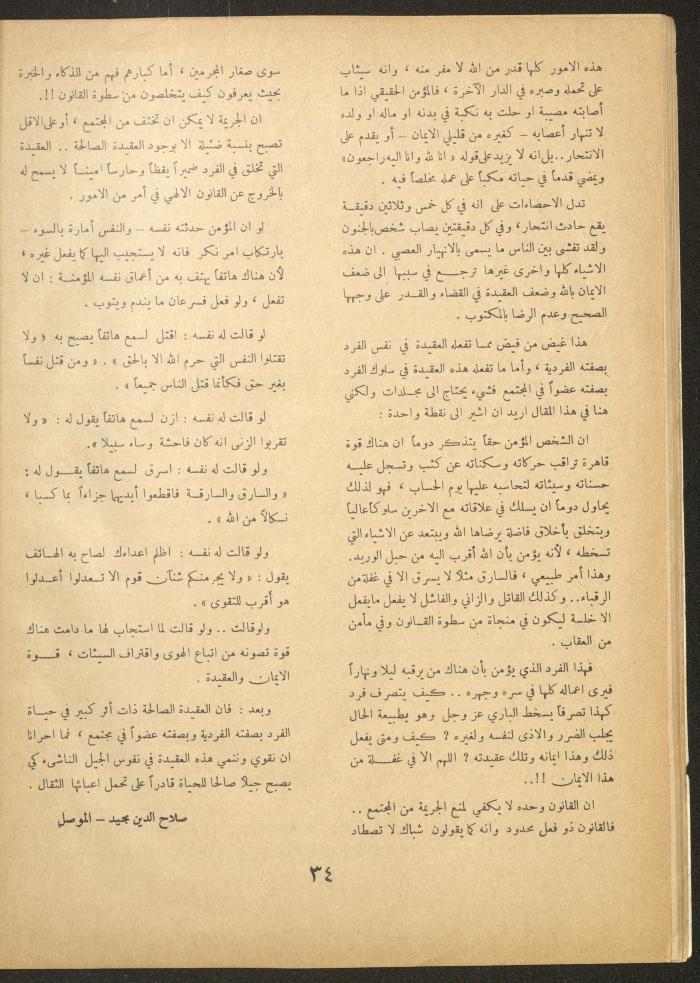 هذه الامور كلها قدر من الله لا مفر منه ، وانه سيثاب
على تحمله وصبره في الدار الآخرة ، فالمؤمن الحقيقي اذا ما
أصابته مصيبة او حلت به نكبة في بدنه او ماله او ولده
لا تنهار أعصابه – كغيره من قليلي الايمان – أو يقدم على
الانتحار..بل انه لا يزيد على قوله « انا لله وانا اليه راجعون»
ويمضي قدماً في حياته مكباً على عمله مخلصاً فيه .
تدل الاحصاءات على انه في كل خمس وثلاثين دقيقة
يقع حادث انتحار، وفي كل دقيقتين يصاب شخص بالجنون
ولقد تفشى بين الناس ما يسمى بالانهيار العصبي . ان هذه
الاشياء كلها واخرى غيرها ترجع في سببها الى ضعف
الايمان بالله وضعف العقيدة في القضاء والقدر على وجهها
الصحيح وعدم الرضا بالمكتوب .
هذا غيض من فيض مما تفعله العقيدة في نفس الفرد
بصفته الفردية ، وأما ما تفعله هذه العقيدة في سلوك الفرد
بصفته عضواً في المجتمع فشيء يحتاج الى مجلدات ولكني
هنا في هذا المقال اريد ان اشير الى نقطة واحدة :
ان الشخص المؤمن حقاً يتذكر دوماً ان هناك قوة
قاهرة تراقب حركاته وسكناته عن كثب وتسجل عليه
حسناته وسيئاته لتحاسبه عليها يوم الحساب ، فهو لذلك
يحاول دوماً ان يسلك في علاقاته مع الاخرين سلوكاً عالياً
ويتخلق بأخلاق فاضلة يرضاها الله ويبتعد عن الاشياء التي
تسخطه ، لأنه يؤمن بأن الله أقرب اليه من حبل الوريد.
وهذا أمر طبيعي ، فالسارق مثلا لا يسرق الا في غفلة من
الرقباء.. وكذلك القاتل والزاني والفاشل لا يفعل ما يفعل
الا خلسة ليكون في منجاة من سطوة القانون وفي مأمن
من العقاب .
فهذا الفرد الذي يؤمن بأن هناك من يرقبه ليلا ونهاراً
فيرى اعماله كلها في سره وجهره .. كيف يتصرف فرد
كهذا تصرفاً يسخط الباري عز وجل وهو بطبيعة الحال
يجلب الضرر والاذى لنفسه ولغيره ? كيف ومتى يفعل
ذلك وهذا ايمانه وتلك عقيدته ? اللهم الا في غفلة من
هذا الايمان !!..
ان القانون وحده لا يكفي لمنع الجريمة من المجتمع ..
فالقانون ذو فعل محدود وانه كما يقولون شباك لا تصطاد
سوى صغار المجرمين ، أما كبارهم فهم من الذكاء والخبرة
بحيث يعرفون كيف يتخلصون من سطوة القانون !!.
ان الجريمة لا يمكن ان تختفي من المجتمع ، أو على الاقل
تصبح بنسبة ضئيلة الا بوجود العقيدة الصالحة .. العقيدة
التي تخلق في الفرد ضميراً يقظاً وحارساً اميناً لا يسمح له
بالخروج عن القانون الالهي في أمر من الامور .
لو ان المؤمن حدثته نفسه – والنفس أمارة بالسوء –
بارتكاب امر نكر فانه لا يستجيب اليها كما يفعل غيره ،
لأن هناك هاتفاً يهتف به من أعماق نفسه المؤمنة : ان لا
تفعل ، ولو فعل فسرعان ما يندم ويتوب .
لو قالت له نفسه : اقتل لسمع هاتفاً يصيح به « ولا
تقتلوا النفس التي حرم الله الا بالحق » . « ومن قتل نفساً
بغير حق فكأنما قتل الناس جميعاً » .
لو قالت له نفسه : ازن لسمع هاتفاً يقول له : « ولا
تقربوا الزنى انه كان فاحشة وساء سبيلا ».
ولو قالت له نفسه : اسرق لسمع هاتفاً يقول له :
« والسارق والسارقة فاقطعوا أيديهما جزاءاً بما كسبا ،
نكالاً من الله » .
ولو قالت له نفسه : اظلم اعداءك لصاح به الهاتف
يقول : « ولا يجرمنكم شنآن قوم الا تعدلوا أعدلوا
هو أقرب للتقوى » .
ولو قالت .. ولو قالت لما استجاب لها ما دامت هناك
قوة تصونه من اتباع الهوى واقتراف السيئات ، قوة
الايمان والعقيدة .
وبعد : فان العقيدة الصالحة ذات أثر كبير في حياة
الفرد بصفته الفردية وبصفته عضواً في مجتمع ، فما احرانا
ان نقوي وننمي هذه العقيدة في نفوس الجيل الناشىء كي
يصبح جيلاً صالحا للحياة قادراً على تحمل اعبائها الثقال .
صلاح الدين مجيد – الموصل
٣٤